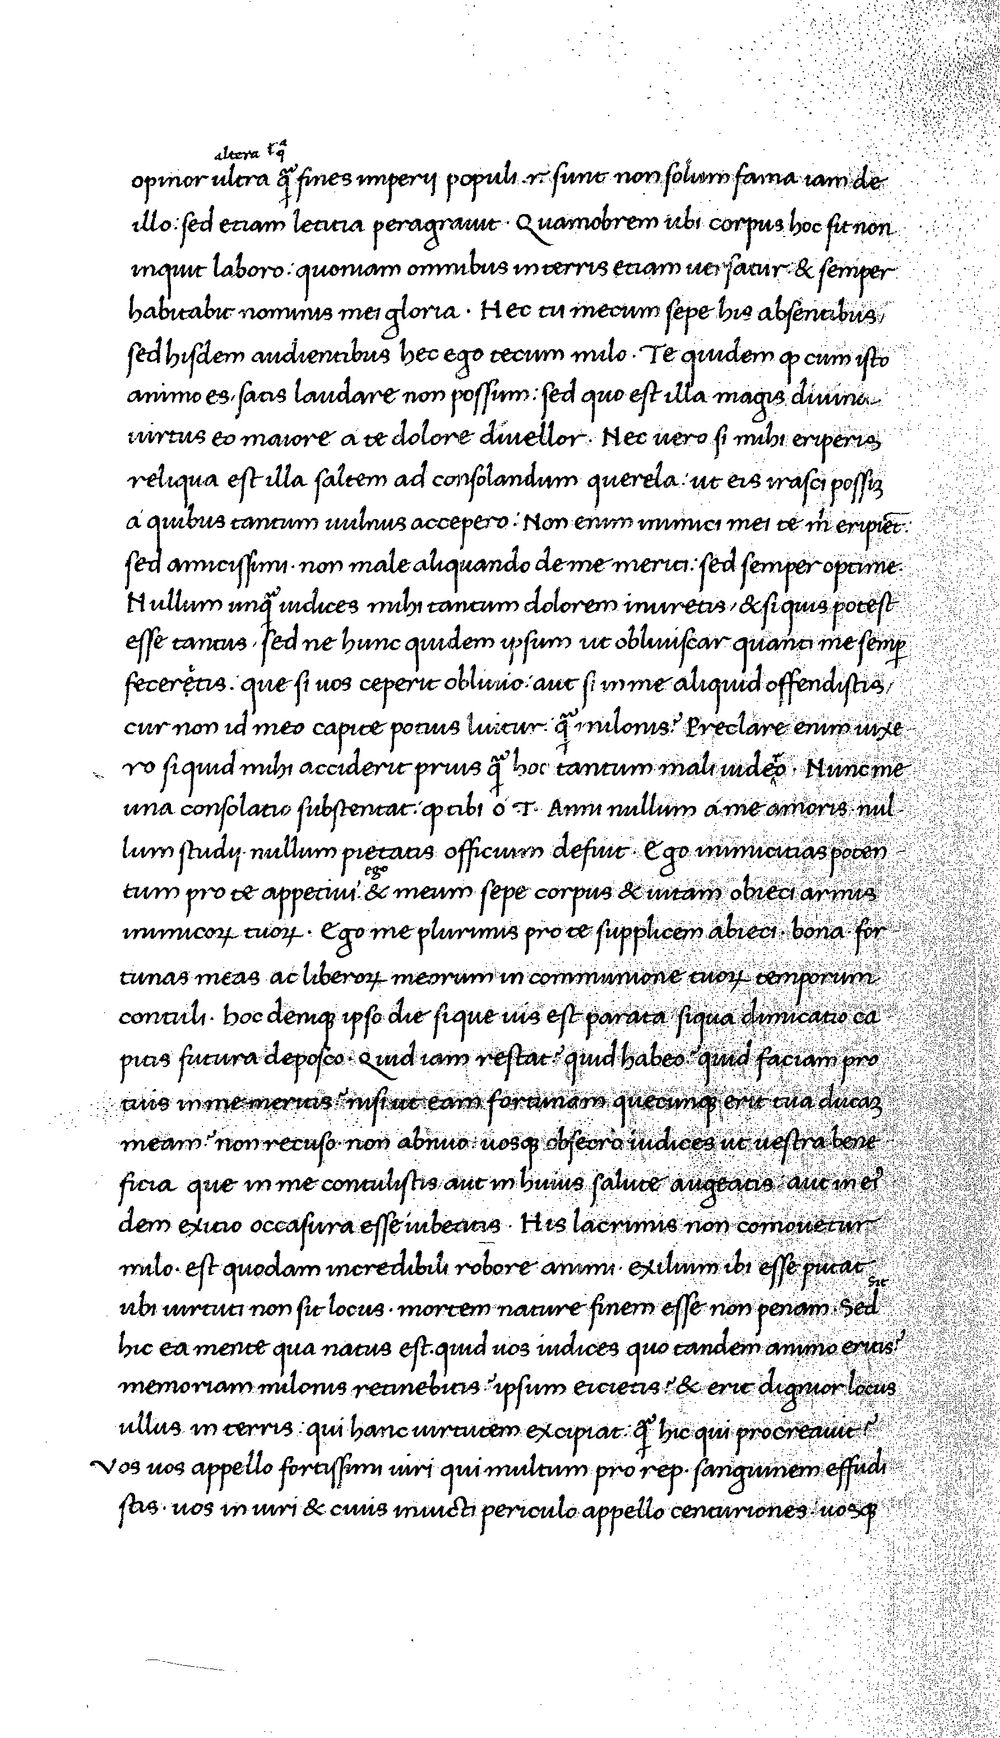 altera tͣq
opinor ultra qͣ̃ fines imperii populi .r. sunt non solum fama iam de
illo: sed etiam letitia peragrauit · Quamobrem ubi corpus hoc sit non
inquit laboro: quoniam omnibus in terris etiam uersatur · & semper
habitabit nominis mei gloria · Hec tu mecum sepe his absentibus,
sed hisdem audientibus hec ego tecum milo · Te quidem ꝙ cum isto
animo es, satis laudare non possum: sed quo est illa magis diuina
uirtus eo maiore a te dolore diuellor · Nec uero si mihi eriperis
reliqua est illa saltem ad consolandum querela: ut eis irasci possiꝫ
a quibus tantum uulnus accepero: Non enim inimici mei te m̍ eripiēt:
sed amicissimi · non male aliquando de me meriti: sed semper optime.
Nullum unqͣ̃ iudices mihi tantum dolorem inuretis, & si quis potest
esse tantus, sed ne hunc quidem ipsum ut obliuiscar quanti me semꝑ
feceretis: que si uos ceperit obliuio: aut si in me aliquid offendistis,
cur non id meo capite potius luitur: qͣ̃ milonis? Preclare enim uixe
ro siquid mihi acciderit prius qͣ̃ hoc tantum mali uideo · Nunc me
una consolatio substentat: ꝙ tibi o T· Anni nullum a me amoris · nul
lum studii · nullum pietatis officium defuit · Ego inimicitias poten
tum pro te appetiui: ego & meum sepe corpus & uitam obieci armis
inimicoꝝ tuoꝝ · Ego me plurimis pro te supplicem abieci · bona for
tunas meas ac liberoꝝ meorum in communione tuoꝝ temporum
contuli · hoc deniqꝫ ipso die si que uis est parata siqua dimicatio ca
pitis futura deposco · Quid iam restat? quid habeo? quid faciam pro
tuis in me meritis? nisi ut eam fortunam quecunqꝫ erit tua ducaꝫ
meam? non recuso · non abnuo · uosqꝫ obsecro iudices ut uestra bene
ficia que in me contulistis aut in huius salute augeatis: aut in eiꝰ
dem exitio occasura esse iubeatis · His lacrimis non comouetur
milo · est quodam incredibili robore animi · exilium ibi esse putat
ubi uirtuti non sit locus · mortem nature finem esse non penam · Sed sit
hic ea mente qua natus est. quid uos iudices quo tandem animo eritis?
memoriam milonis retinebitis? ipsum eicietis? & erit dignior locus
ullus in terris: qui hanc uirtutem excipiat: qͣ̃ hic qui procreauit?
Vos uos appello fortissimi uiri qui multum pro rep· sanguinem effudi
stis · uos in uiri & ciuis inuicti periculo appello centuriones: uosqꝫ